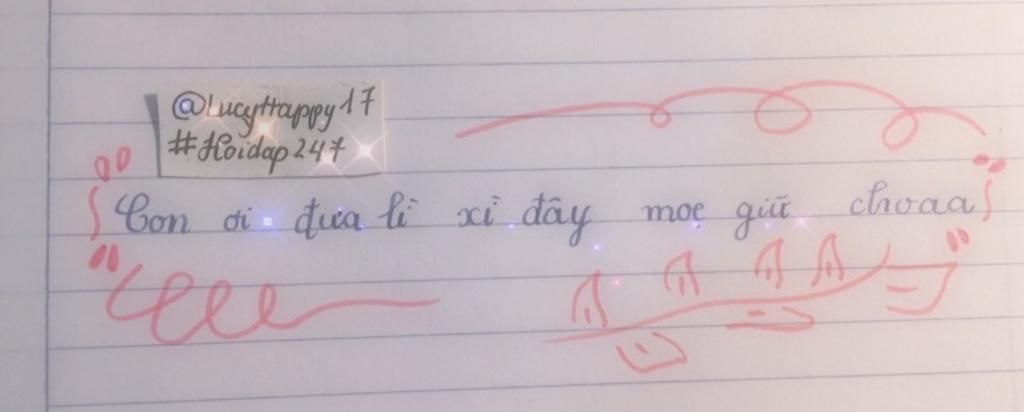 @LucyHappy17
#Hoidap247
Con ơi đưa lì xì đây moe giữ choaa